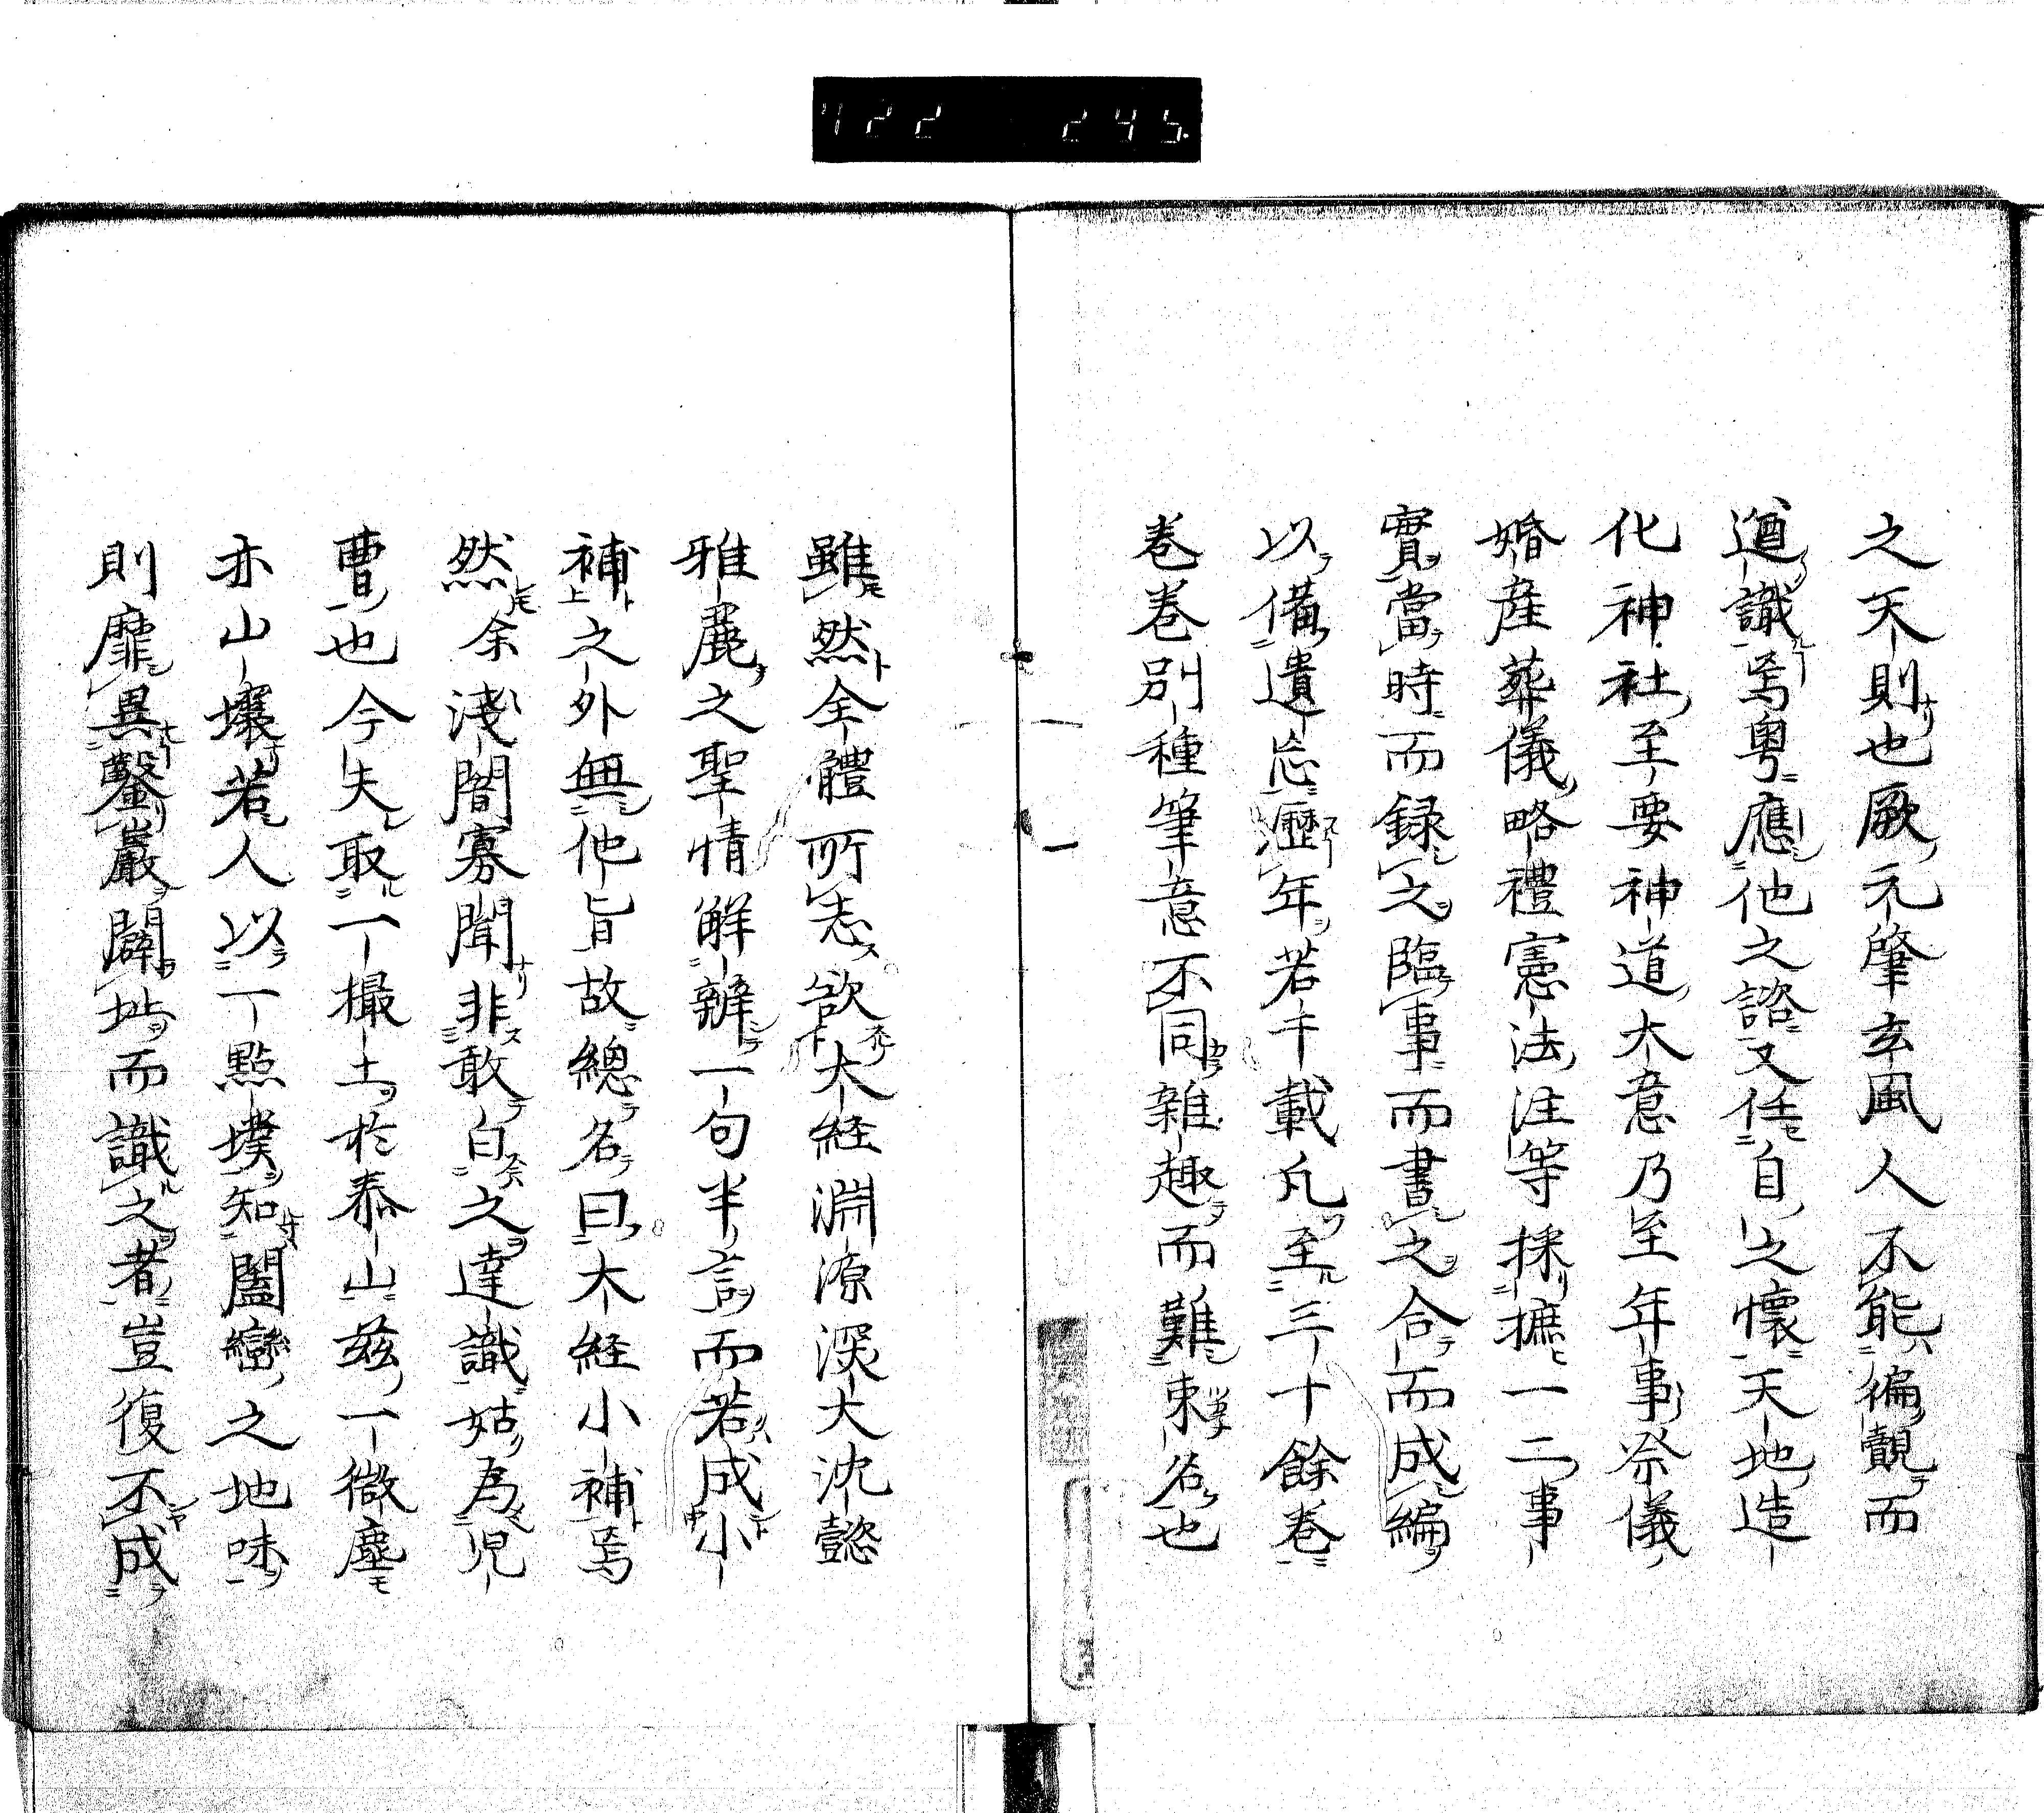 722 245
之天則也厥元肇玄風人不能徧覿而
遒識焉粤應他之諮又任自之懷天地造
化神社至要神道大意乃至年事祭儀
婚產葬儀略禮憲法注等採摭一二事
實當時而録之臨事而書之合而成編
以備遺忘歷年若干載凡至三十餘卷
卷卷別種筆意不同雜趣而難束名也
雖然全體所志欲大経淵源深大沈懿
雅麗之聖情解辨一句半言而若成小
補之外無他旨故總名曰大経小補焉
然余淺闇寡聞非敢白之達識姑為児
曹也今夫取一撮土於泰山玆一微塵
亦山壤若人以一點墣知闔巒之地味
則靡異鑿巖闢址而識之者豈復不成